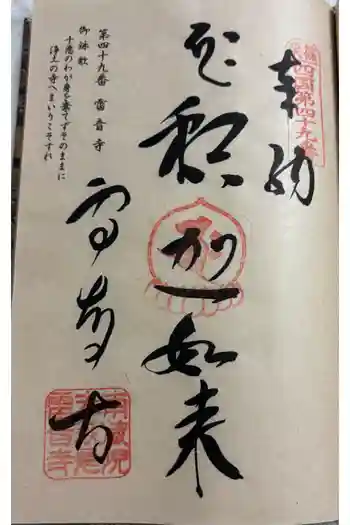 四国第四十九番
奉納
釈迦如来
雷音寺
第四十九番 雷音寺
御詠歌
十悪のわが身を棄てずそのままに
浄土の寺へまいりこそすれ